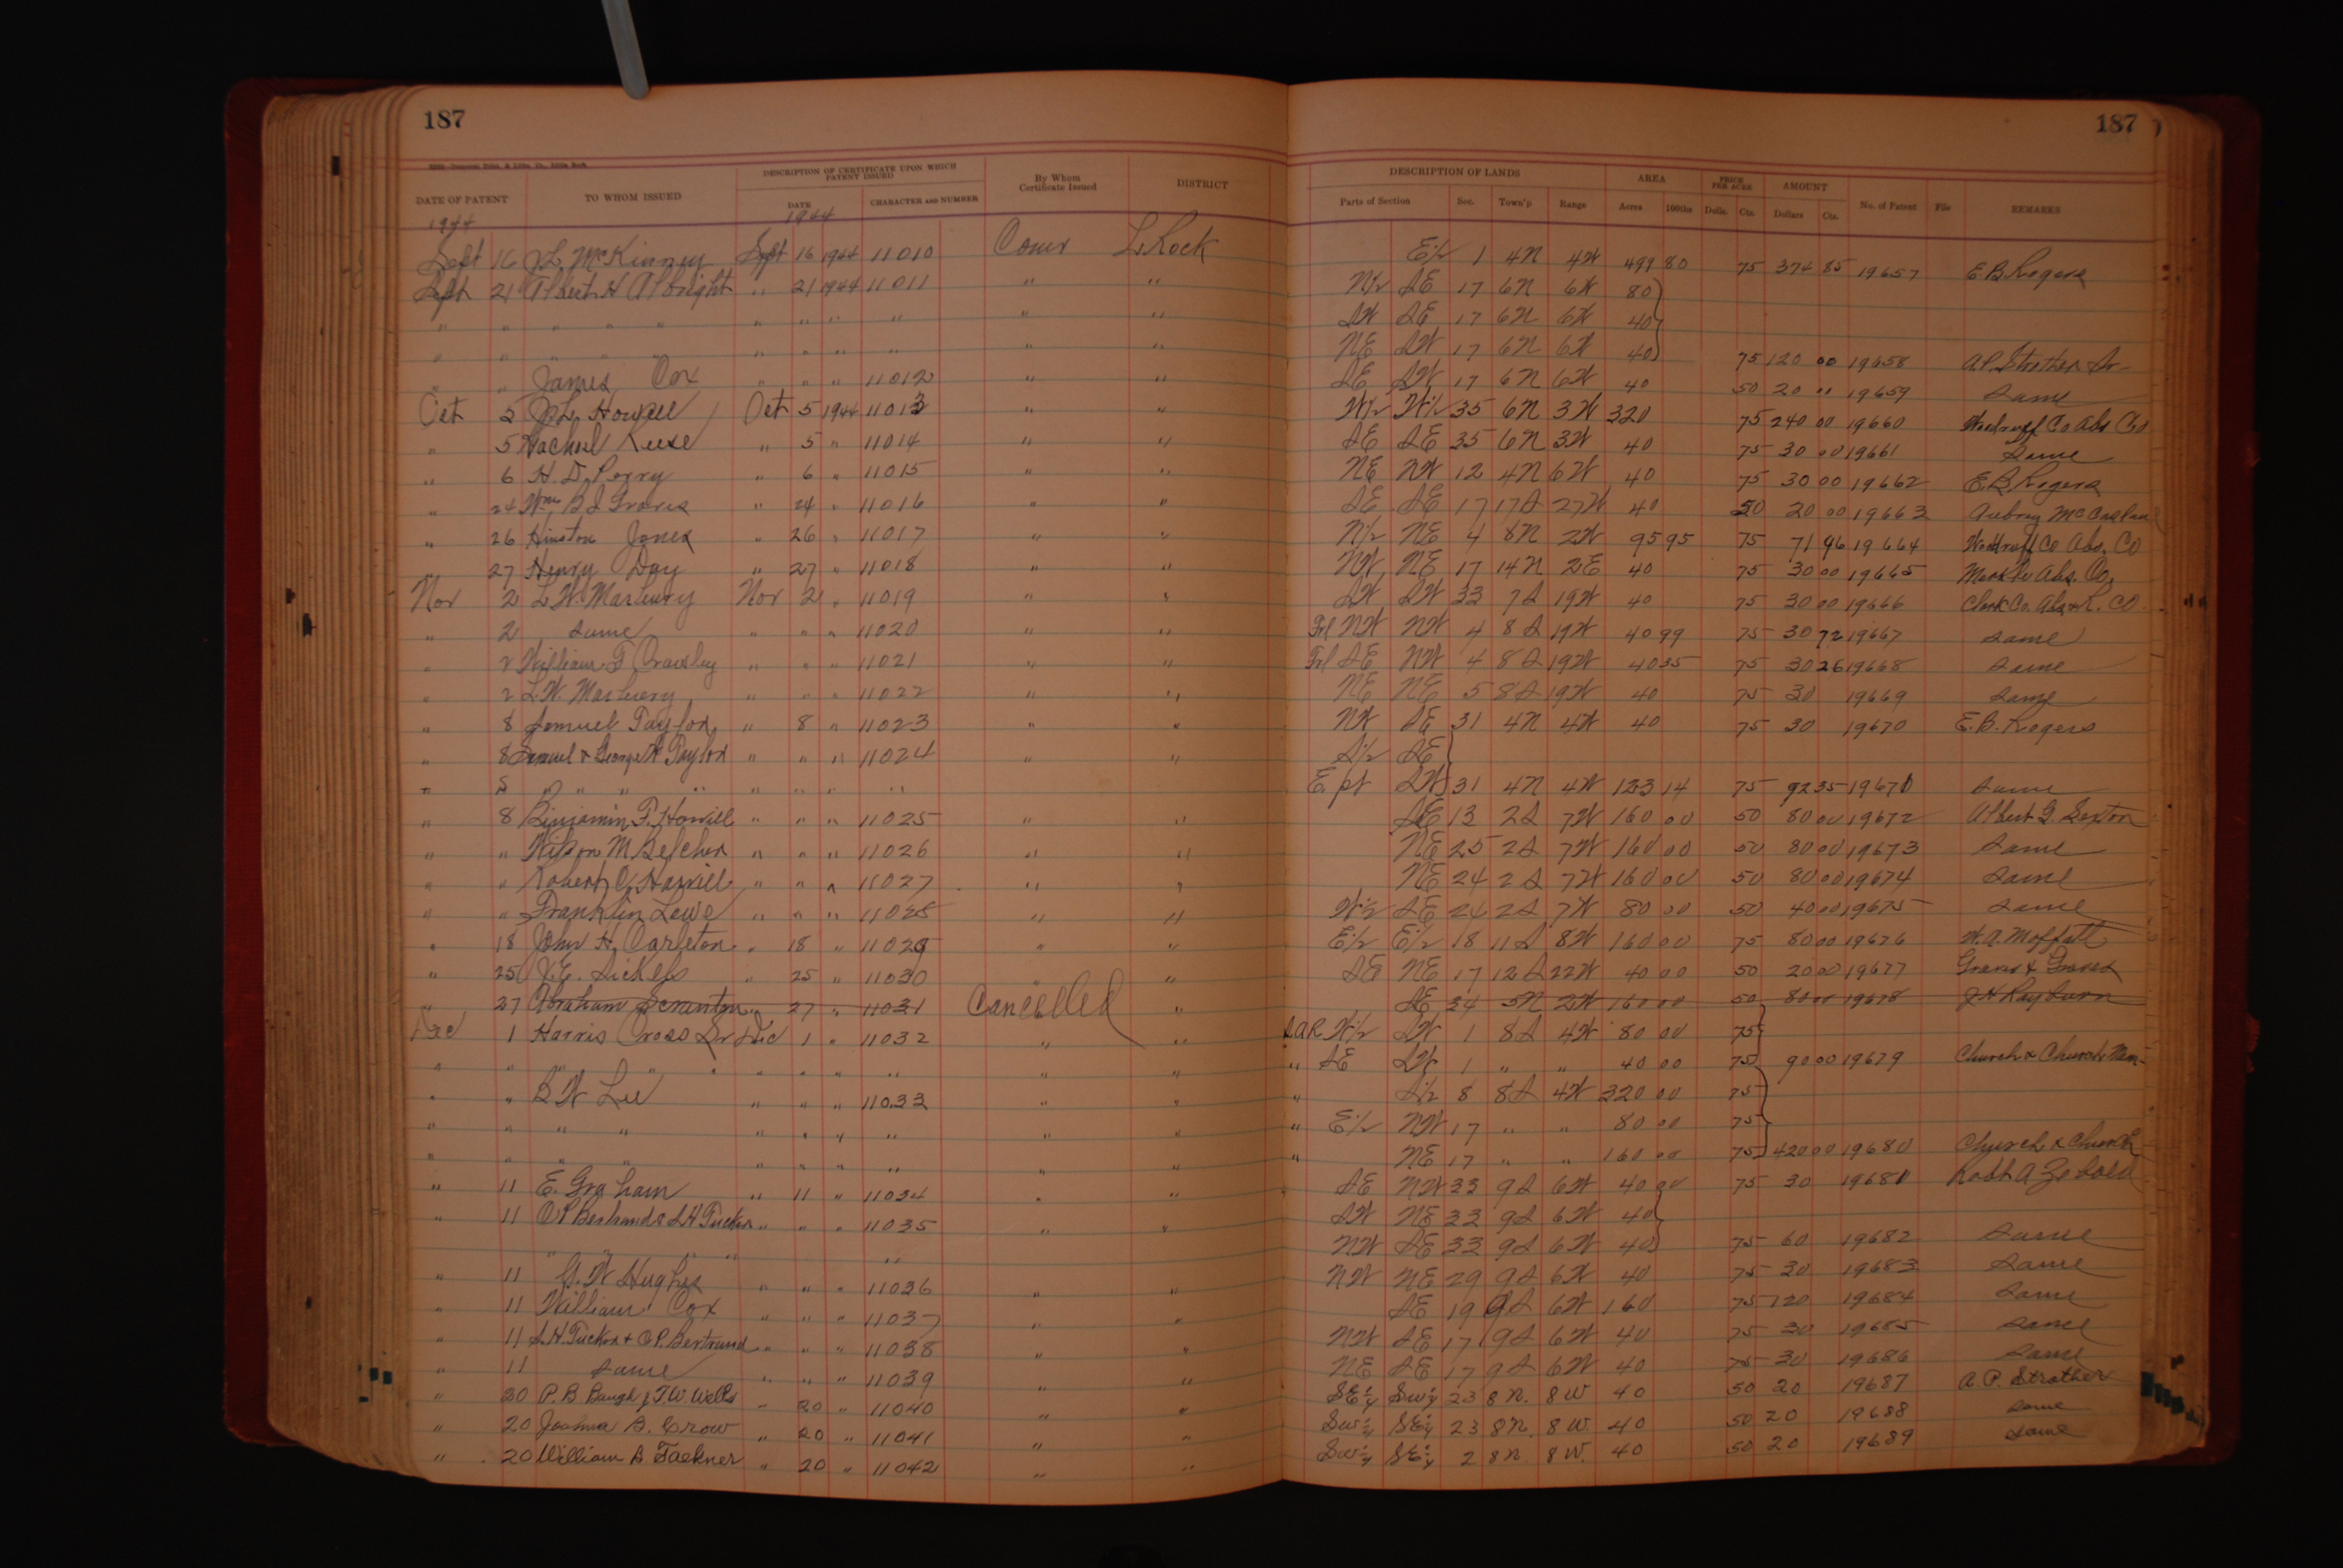 187
187
DESCRIPTION OF CERTIFICATE UPON WHICH PATENT ISSUED
DESCRIPTION OF LANDS AREA PRICE PER ACRE AMOUNT
DATE OF PATENT TO WHOM ISSUED DATE CHARACTER AND NUMBER By Whom Certificate Issued DISTRICT Parts of Section Sec. Town'p Range Acres 100ths Dolls. Cts. Dollars Cts. No. of Patent File REMARKS
1944 1944
Sept 16 J.L. McKinney Sept 16 1944 11010 Comr L. Rock E½ 1 4N 4W 499 80 75 374 85 19657 E.B. Rogers
Sept 21 Albert H Albright " 21 1944 11011 " " N½ SE 17 6N 6W 80
" " " " " " " " " " " SW SE 17 6N 6W 40
" " " " " " " " " " " NE SW 17 6N 6W 40 75 120 00 19658 A.P. Strother Sr
" " James Cox " " " 11012 " " SE SW 17 6N 6W 40 50 20 " 19659 Same
Oct 5 J.L. Howell Oct 5 1944 11013 " " W½ W½ 35 6N 3W 320 75 240 00 19660 Woodruff Co Abs Co
" 5 Rachael Reese " 5 " 11014 " " SE SE 35 6N 3W 40 75 30 00 19661 Same
" 6 H.D. Perry " 6 " 11015 " " NE NW 12 4N 6W 40 75 30 00 19662 E.B. Rogers
" 24 Wm B J Graves " 24 " 11016 " " SE SE 17 17S 27W 40 50 20 00 19663 Aubrey McCaslan
" 26 Hinston Jones " 26 " 11017 " " N½ NE 4 8N 2W 95 95 75 71 96 19664 Woodruff Co Abs. Co
" 27 Henry Day " 27 " 11018 " " NW NE 17 14N 2E 40 75 30 00 19665 Abs. Co.
Nov 2 L.W. Marbury Nov 2 " 11019 " " SW SW 33 7S 19W 40 75 30 00 19666 Clark Co. Abs & L. Co
" 2 same " " " 11020 " " Frl NW NW 4 8S 19W 40 99 75 30 72 19667 same
" 2 William F Crawley " " " 11021 " " Frl SE NW 4 8S 19W 40 35 75 30 26 19668 same
" 2 L.W. Marbury " " " 11022 " " NE NE 5 8S 19W 40 75 30 19669 same
" 8 Samuel Taylor " 8 " 11023 " " NW SE 31 4N 4W 40 75 30 19670 E.B. Rogers
" 8 Samuel & George W Taylor " " " 11024 " " S½ SE
" 8 " " " " " " " " E. pt SW 31 4N 4W 123 14 75 92 35 19671 same
" 8 Benjamin F. Howell " " " 11025 " " SE 13 2S 7W 160 00 50 80 00 19672 Albert G. Sexton
" " Wilson M Belcher " " " 11026 " " NE 25 2S 7W 160 00 50 80 00 19673 Same
" " Robert C. Harvill " " " 11027 " " NE 24 2S 7W 160 00 50 80 00 19674 Same
" " Franklin Lewe " " " 11028 " " W½ SE 24 2S 7W 80 00 50 40 00 19675 Same
" 18 John H. Carleton " 18 " 11029 " " E½ E½ 18 11S 8W 160 00 75 80 00 19676 W.A. Moffatt
" 25 J.E. Sickels " 25 " 11030 " SE NE 17 12S 22W 40 00 50 20 00 19677 Graves & Graves
" 27 Abraham Scranton " 27 " 11031 Cancelled " SE 34 5N 2W 160 00 50 80 00 19678 J H Rayburn
Dec 1 Harris Cross Sr Dec 1 " 11032 " " SAR W½ SW 1 8S 4W 80 00 75
" " " " " " " " " " " " SE SW 1 " " 40 00 75 90 00 19679 Church & Church
" " B W Lee " " " 11033 " " " S½ 8 8S 4W 320 00 75
" " " " " " " " " " " E½ NW 17 " " 80 00 75
" " " " " " " " " " " NE 17 " " 160 00 75 420 00 19680 Church & Church
" 11 E. Graham " 11 " 11034 " " SE NW 33 9S 6W 40 00 75 30 19681 Robt A Zebold
" 11 C P Bertrand & S H Tucker " " " 11035 " " SW NE 33 9S 6W 40
" " " " NW SE 33 9S 6W 40 75 60 19682 Same
" 11 G. W Hughes " " " 11036 " " NW NE 29 9S 6W 40 75 30 19683 Same
" 11 William Cox " " " 11037 " " SE 19 9S 6W 160 75 120 19684 Same
" 11 S.H. Tucker & C.P. Bertrand " " " 11038 " " NW SE 17 9S 6W 40 75 30 19685 Same
" 11 same " " " 11039 " " NE SE 17 9S 6W 40 75 30 19686 Same
" 20 P.B. Baugh & T.W. Wells " 20 " 11040 " " SE¼ SW¼ 23 8N. 8W 40 50 20 19687 A.P. Strother
" 20 Joshua B. Crow " 20 " 11041 " " SW¼ SE¼ 23 8N. 8W. 40 50 20 19688 same
" 20 William B. Faekner " 20 " 11042 " " SW¼ SE¼ 2 8N. 8W. 40 50 20 19689 same